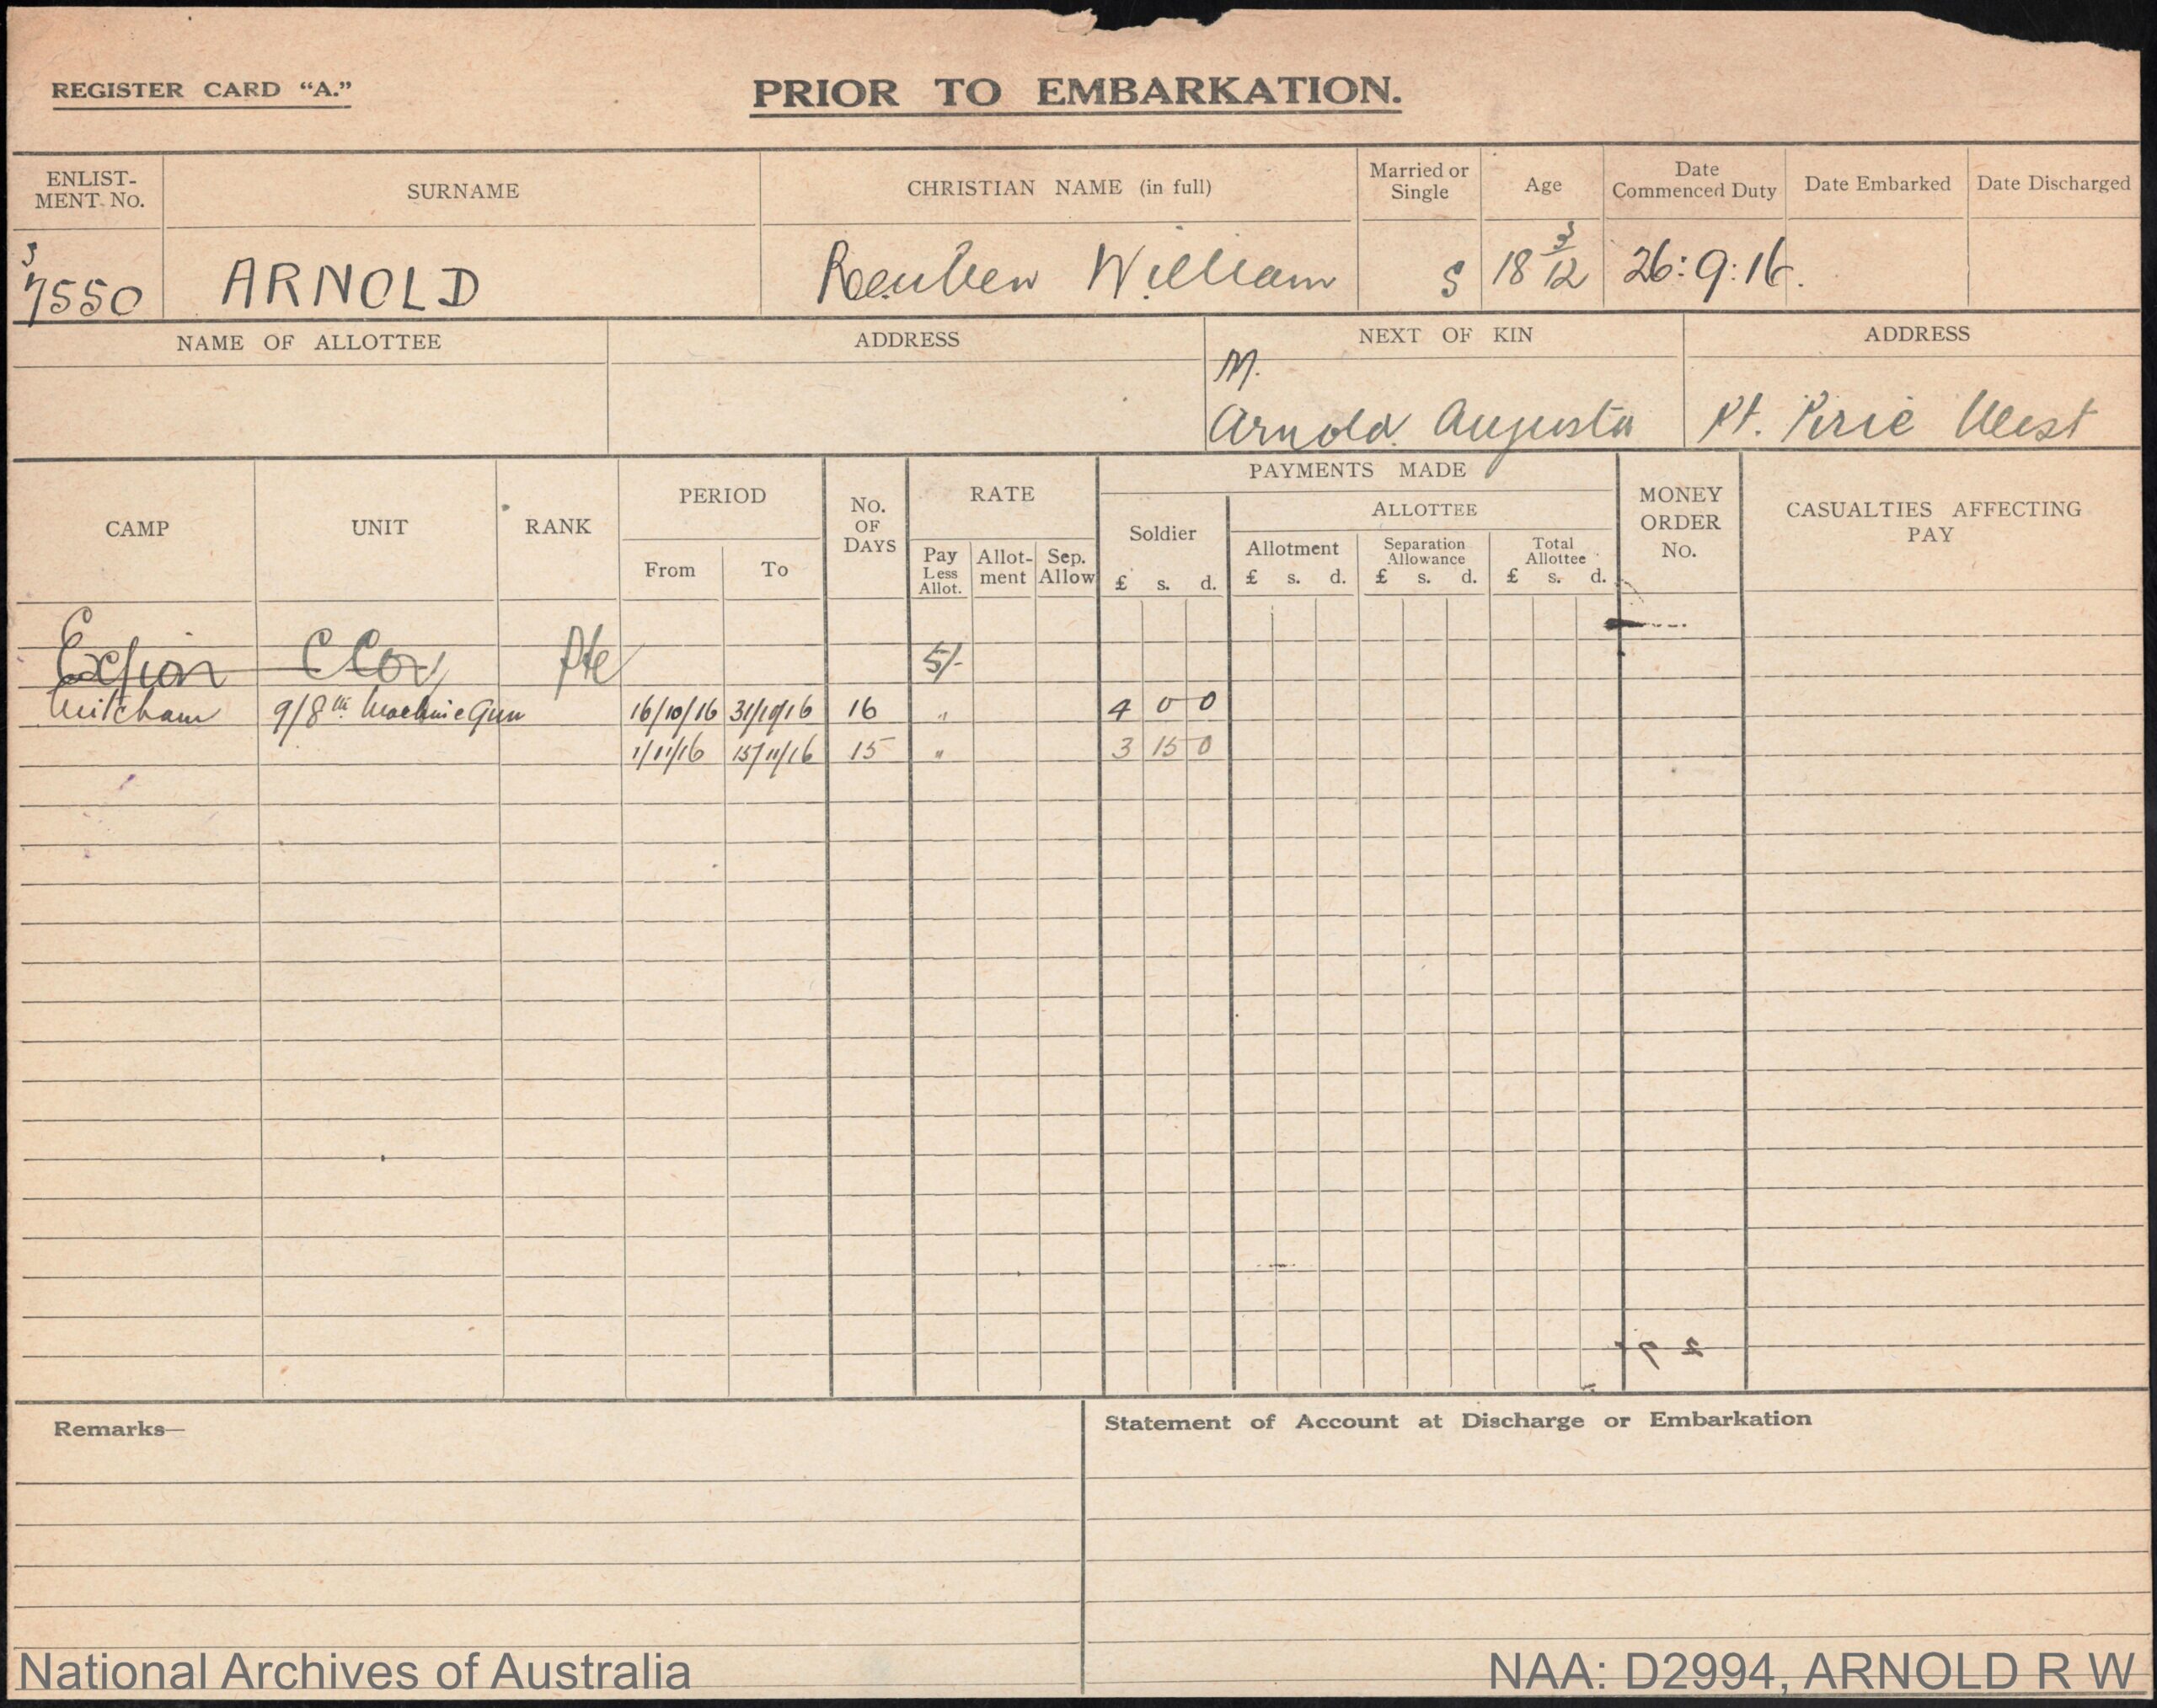 REGISTER CARD “A.”
PRIOR TO EMBARKATION.
ENLIST-
MENT No.
SURNAME
CHRISTIAN NAME (in full)
Married or
Single
Age
Date
Commenced Duty
Date Embarked
Date Discharged
S
7550
ARNOLD
Reuben William
S
18 3/12
26:9:16.
NAME OF ALLOTTEE
ADDRESS
NEXT OF KIN
ADDRESS
M.
Arnold Augusta
Pt. Pirie West
CAMP
UNIT
RANK
PERIOD
From
To
No.
OF
DAYS
RATE
Pay
Less
Allot.
Allot-
ment
Sep.
Allow
PAYMENTS MADE
Soldier
£ s. d.
ALLOTTEE
Allotment
£ s. d.
Separation
Allowance
£ s. d.
Total
Allottee
£ s. d.
MONEY
ORDER
No.
CASUALTIES AFFECTING
PAY
C Coy Pte 5/-
Mitcham 9/8th Machine Gun 16/10/16 31/10/16 16 " 4 0 0
1/11/16 15/11/16 15 " 3 15 0
Remarks—
Statement of Account at Discharge or Embarkation
National Archives of Australia
NAA: D2994, ARNOLD R W